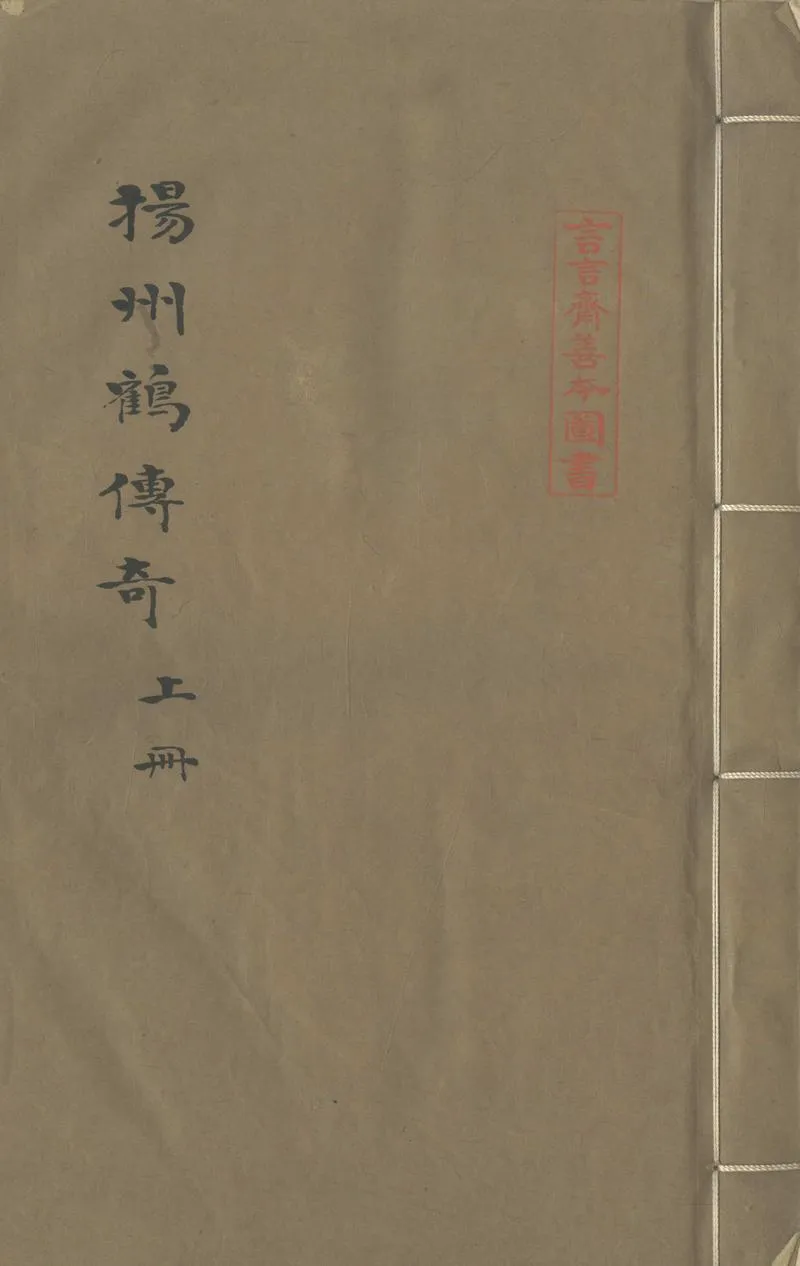 言言齋善本圖書
揚州鶴傳奇 上冊